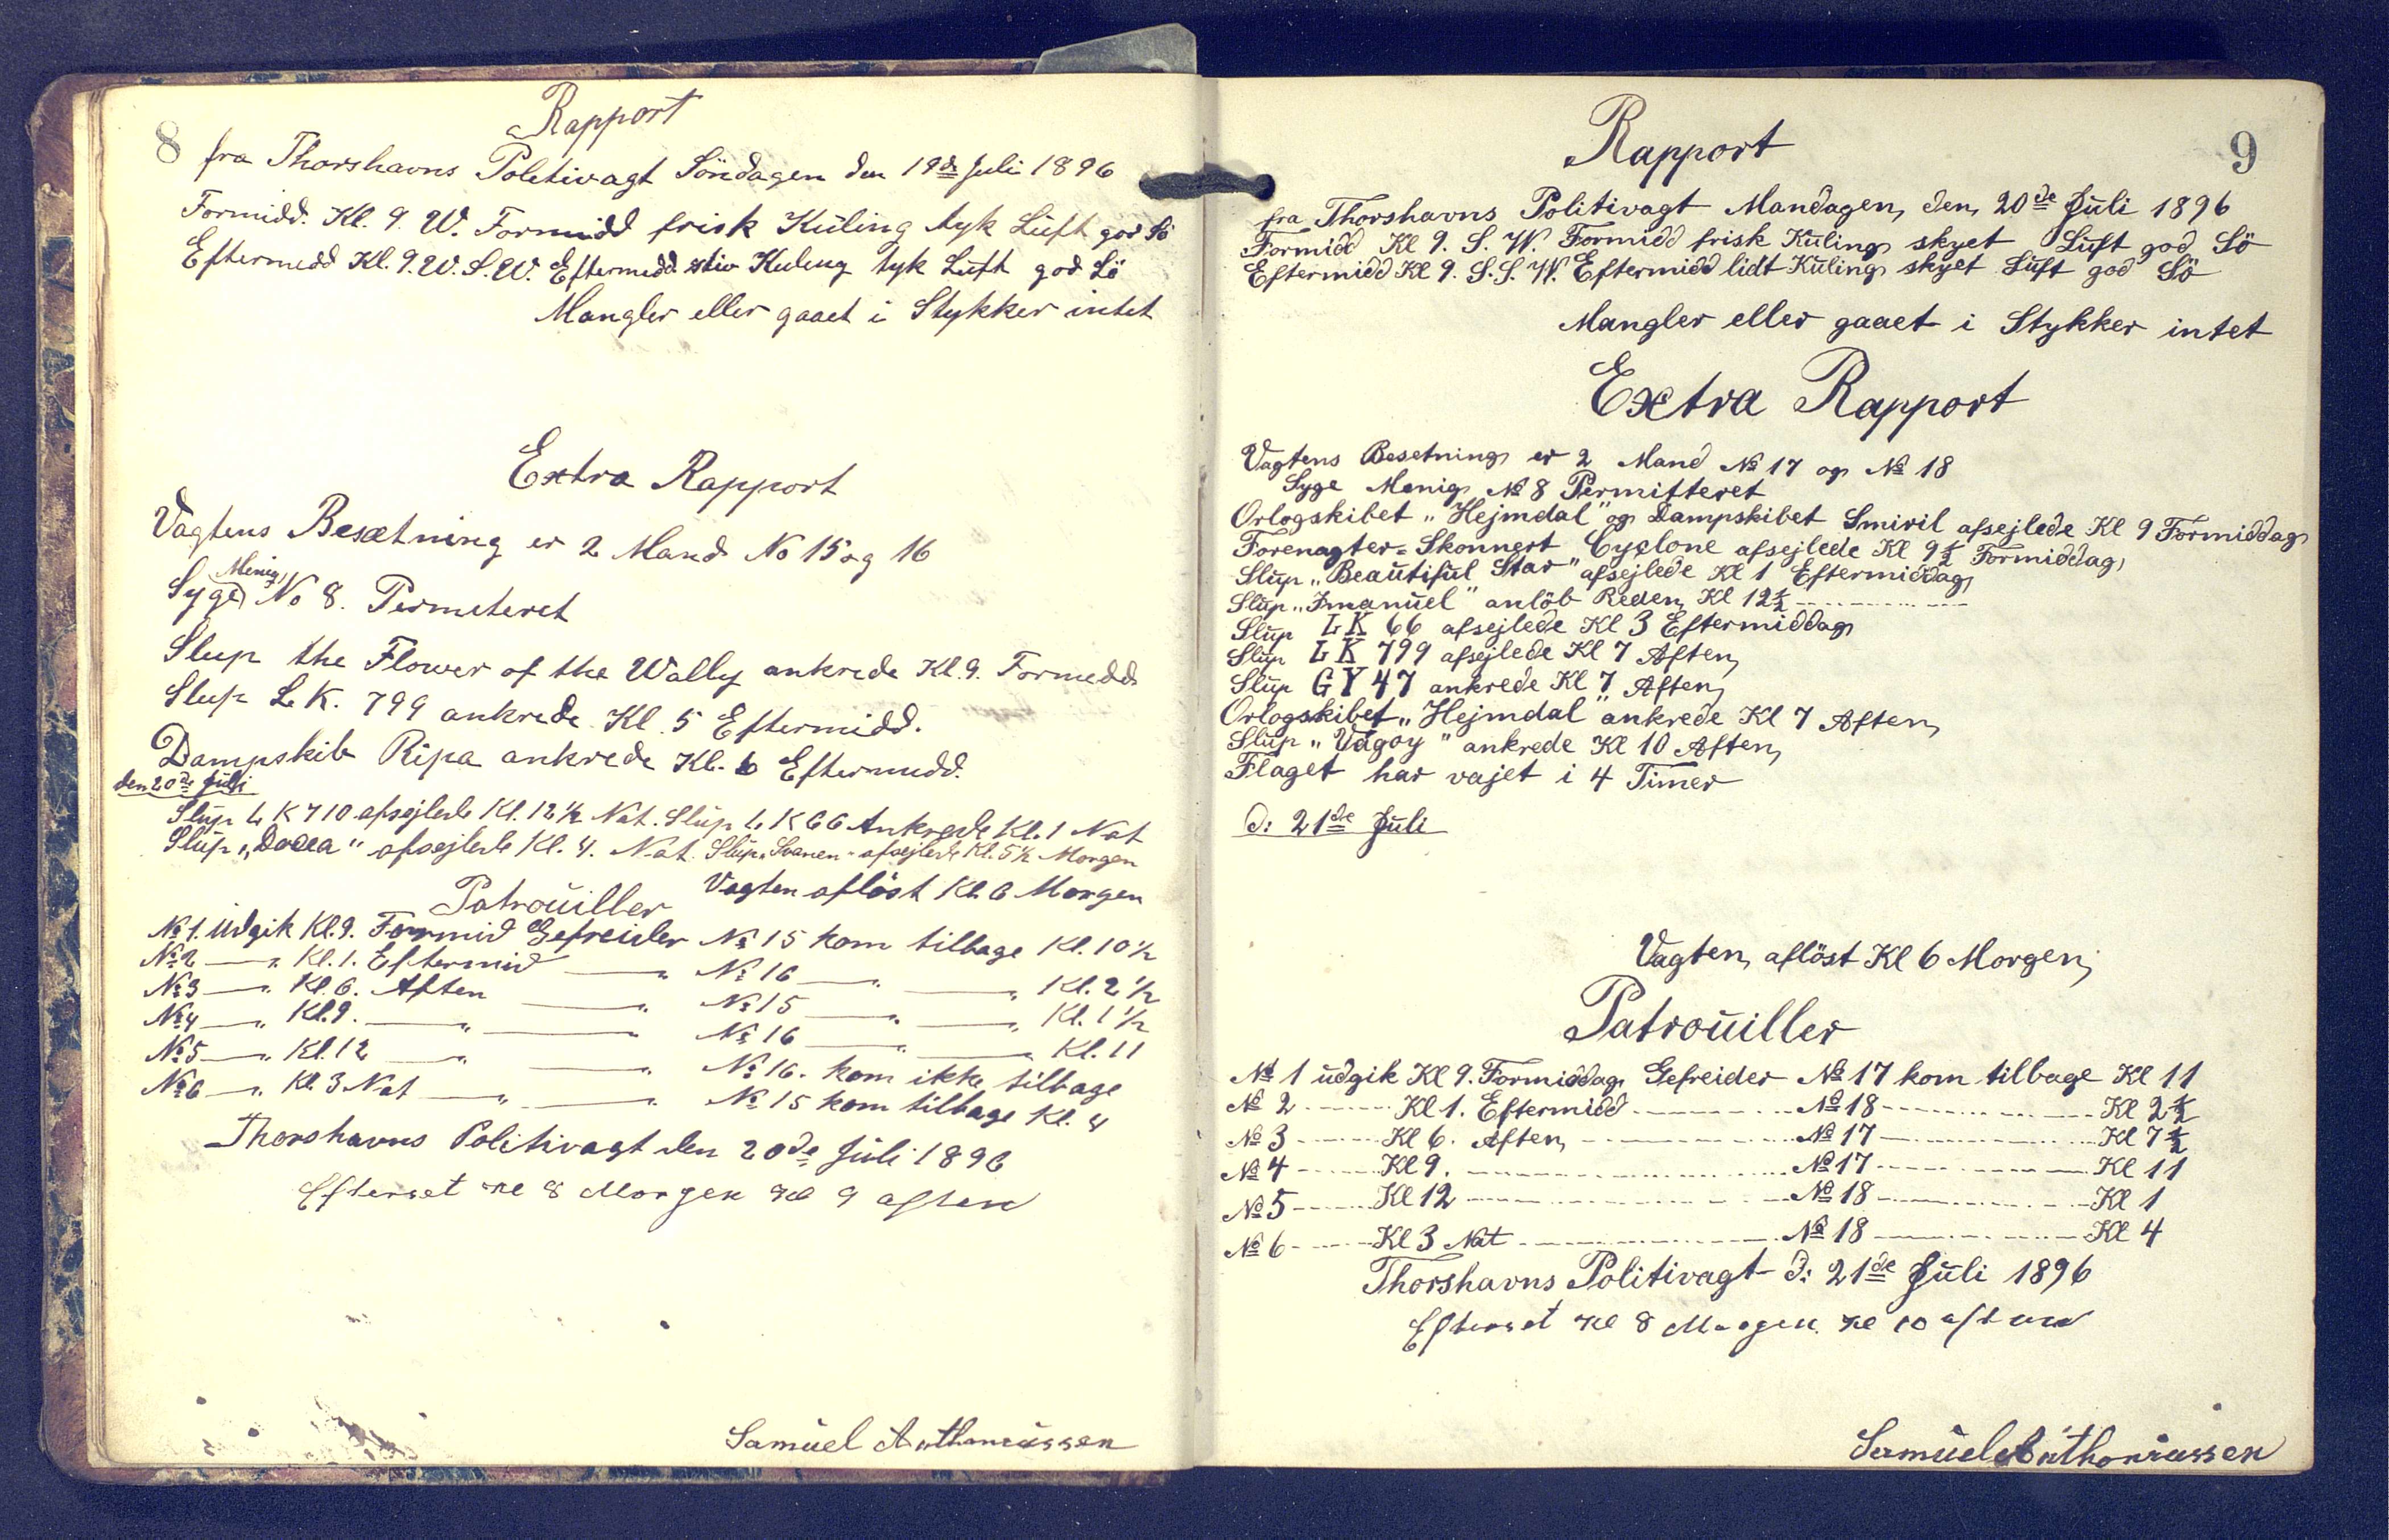 8
Rapport
fra Thorshavns Politivagt Söndagen den 19de Juli 1896
Formidd. Kl. 9. W. Formidd frisk Kuling tyk Luft god Sö
Eftermedd Kl. 9. W. S. W. Eftermedd. stiv Kuleng tyk Luft god Sö
Mangler eller gaaet i Stykker intet
Extra Rapport
Vagtens Besætning er 2 Mand No 15 og 16
Menig
Syge No 8. Permeteret
Slup the Flower of the Wally ankrede Kl. 9. Formedd.
Slup L. K. 799 ankrede Kl. 5 Eftermidd.
Dampskib Ripa ankrede Kl. 6 Eftermedd.
den 20de Juli
Slup L K 710 afsejlede Kl. 12 1/2 Nat. Slup L K 66 Ankrede Kl. 1 Nat
Slup „Docea" afsejlede Kl. 4. Nat. Slup „Svanen" afsejlede Kl. 5 1/2 Morgen
Vagten aflöst Kl. 6 Morgen
Patrouiller
No 1. Udgik Kl. 9. Formid Gefreider No 15 kom tilbage Kl. 10 1/2
No 2 — " Kl. 1. Eftermid — " No 16 — " — " Kl. 2 1/2
No 3 — " Kl. 6. Aften — " No 15 — " — " Kl. 1 1/2
No 4 — " Kl. 9. — " — " No 16 — " — " Kl. 11
No 5 — " Kl. 12 — " — " No 16. kom ikke tilbage
No 6 — " Kl. 3 Nat — " — " No 15 kom tilbage Kl. 4
Thorshavns Politivagt den 20de Juli 1896
Efterset Kl 8 Morgen Kl 9 aften
Samuel Anthoniussen
9
Rapport
fra Thorshavns Politivagt Mandagen, den, 20de Juli 1896
Formidd Kl 9. S. W. Formidd frisk Kuling skyet Luft god Sö
Eftermidd Kl 9. S. S. W. Eftermidd lidt Kuling skyet Luft god Sö
Mangler eller gaaet i Stykker intet
Extra Rapport
Vagtens Besetning er 2 Mand No 17 og No 18
Syge Menig No 8 Permitteret
Orlogskibet „Hejmdal" og Dampskibet Smiril afsejlede Kl 9 Formiddag
Forenagter-Skonnert Cyclone afsejlede Kl 9 1/2 Formiddag
Slup „Beautiful Star" afsejlede Kl 1 Eftermiddag
Slup „Imanuel" anlöb Reden, Kl 12 1/2 - - - - - -
Slup LK 66 afsejlede Kl 3 Eftermiddag
Slup LK 799 afsejlede Kl 7 Aften,
Slup GY 47 ankrede Kl 7 Aften,
Orlogskibet „Hejmdal" ankrede Kl 7 Aften,
Slup „Vågoy" ankrede Kl 10 Aften,
Flaget har vajet i 4 Timer
d: 21de Juli
Vagten, aflöst Kl 6 Morgen,
Patrouiller
No 1 udgik Kl 9. Formiddag Gefreider No 17 kom tilbage Kl 11
No 2 ------ Kl 1. Eftermidd ------ No 18 ------ Kl 2 1/2
No 3 ------ Kl 6. Aften, ------ No 17 ------ Kl 7 1/2
No 4 ------ Kl 9. ------ No 17 ------ Kl 11
No 5 ------ Kl 12 ------ No 18 ------ Kl 1
No 6 ------ Kl 3 Nat ------ No 18 ------ Kl 4
Thorshavns Politivagt d: 21de Juli 1896
Efterset Kl 8 Morgen Kl 10 aften
Samuel Anthoniussen